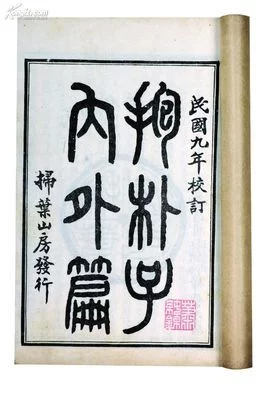 民國九年校訂
抱朴子
內外篇
掃葉山房發行